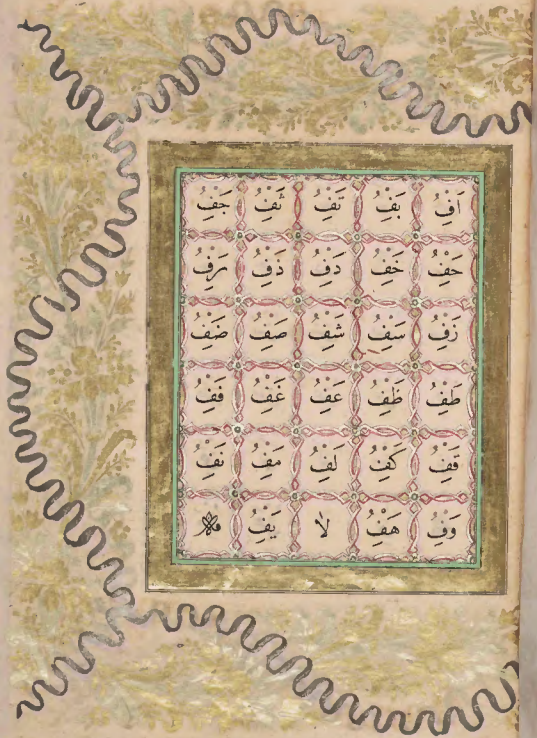 اَفِ بَفِ تَفِ ثَفِ جَفِ
حَفِ خَفِ دَفِ ذَفِ رَفِ
زَفِ سَفِ شَفِ صَفِ ضَفِ
طَفِ ظَفِ عَفِ غَفِ فَفِ
قَفِ كَفِ لَفِ مَفِ نَفِ
وَفِ هَفِ لا يَفِ